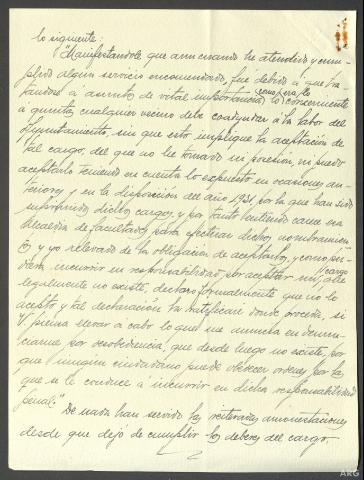 lo siguiente:
"Manifestandole que aun cuando he atendido y cum-
plido algun servicio encomendado, fue debido a que tra-
tandose a asuntos de vital importancia, como para lo
lo concerniente
a quinta, cualquier vecino debe coadyudar a la labor del
Ayuntamiento, sin que esto implique la aceptacion de
tal cargo, del que no he tomado ni posesion, ni puedo
aceptarlo teniendo en cuenta lo expuesto en ocasiones an-
teriores y en la disposicion del año 1931 por la que han sido
suprimidos dichos cargos, y por tanto entiendo carece esa
Alcaldia de facultades para efectuar dichos nombramien-
tos, y yo relevado de la obligacion de aceptarlos, y como pu-
diera incurrir en responsabilidad por aceptar un cargo que
legalmente no existe, declaro formalmente que no lo
acepto y tal declaracion la ratificare donde proceda, si
V. piensa llevar a cabo lo que me anuncia en denun-
ciarme por desobediencia, que desde luego no existe, por
que ningun ciudadano puede obedecer ordenes por la
que se le conduce a incurrir en dicha responsabilidad
penal."
De nada han servido las reiteradas amonestaciones
desde que dejó de cumplir los deberes del cargo.
ARG